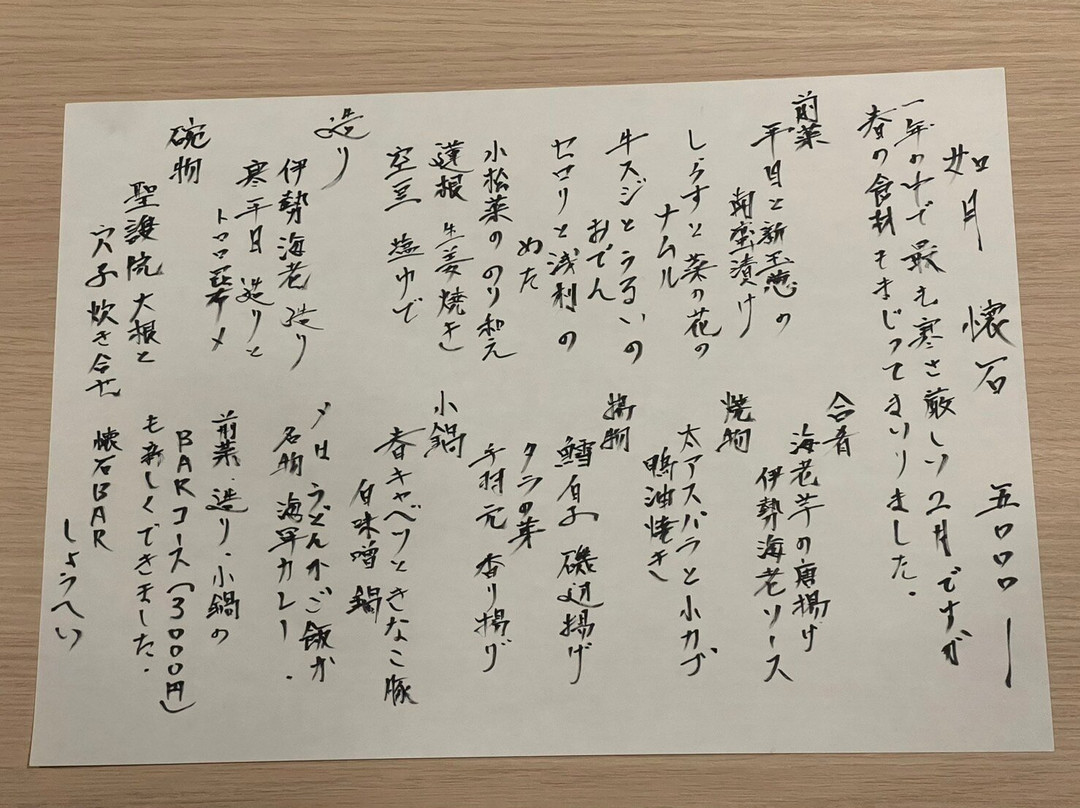 如月 懐石 五〇〇〇ー
一年の中で最も寒さ厳しい2月ですが
春の食材もまじってまいりました.
前菜
平目と新玉葱の
南蛮漬け
しらすと菜の花の
ナムル
牛スジとうるいの
おでん
セロリと浅利の
ぬた
小松菜ののり和え
蓮根 生姜焼き
空豆 塩ゆで
造り
伊勢海老 造り
寒平目 造りと
トロロ昆布〆
碗物
聖護院大根と
穴子炊き合せ
合肴
海老芋の唐揚げ
伊勢海老ソース
焼物
太アスパラと小カブ
鴨油焼き
揚物
鱈白子 磯辺揚げ
タラの芽
手羽元 香り揚げ
小鍋
春キャベツときなこ豚
白味噌鍋
〆は うどんかご飯か
名物 海軍カレー.
前菜.造り.小鍋の
BARコース(3000円)
も新しくできました.
懐石BAR
しょうへい